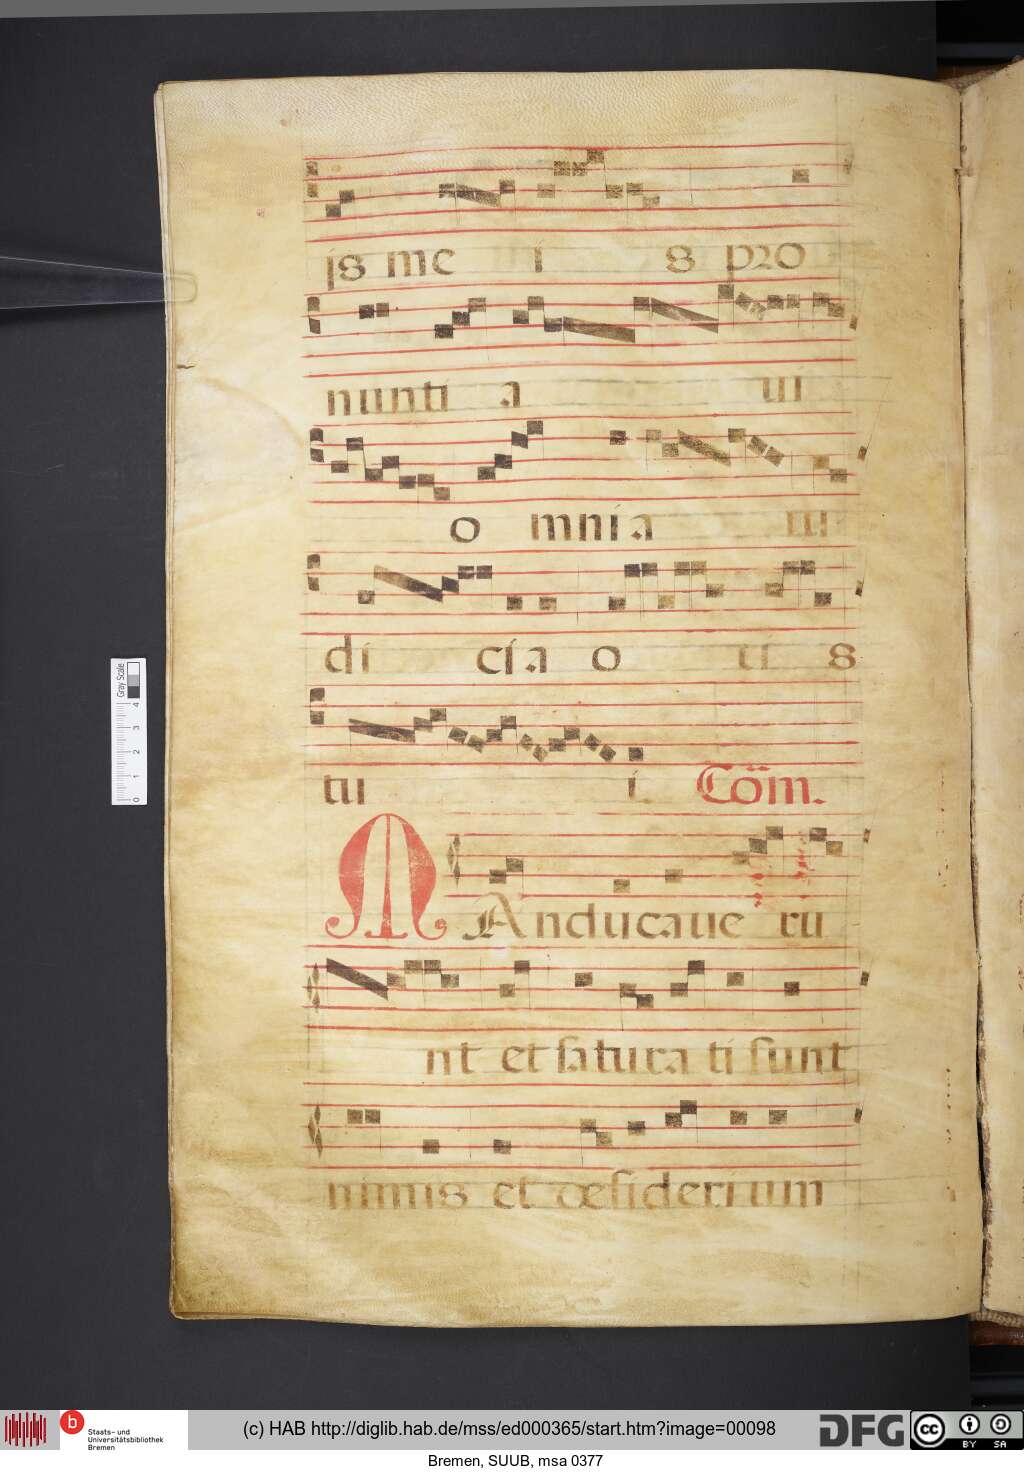 js me i s pro
nunti a ui
o mnia iu
di cia o ri s
tu i. Com̃.
MAnducaue ru
nt et satura ti sunt
nimis et desiderium
Gray Scale
0 1 2 3 4
b Staats- und
Universitätsbibliothek
Bremen
(c) HAB http://diglib.hab.de/mss/ed000365/start.htm?image=00098
DFG
cc BY SA
Bremen, SUUB, msa 0377